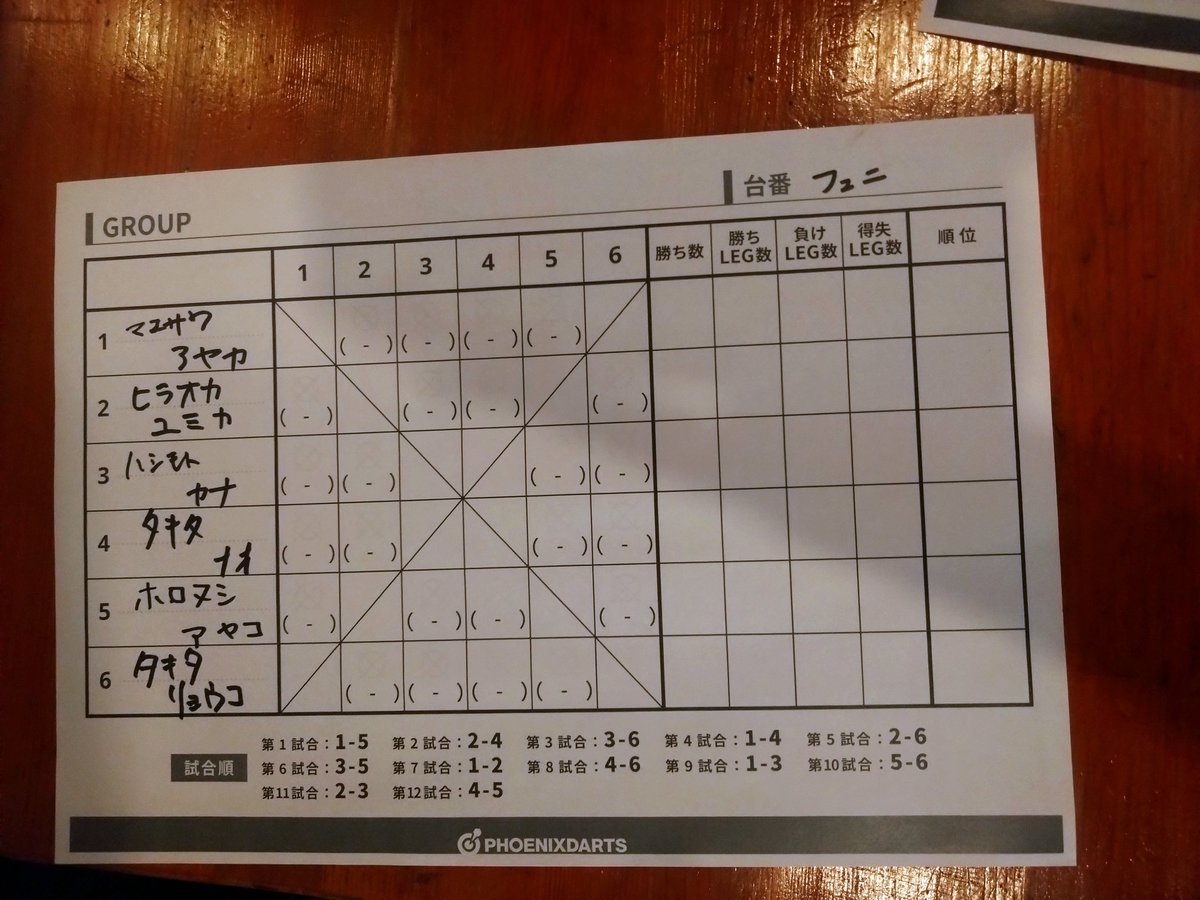 GROUP
台番 フェニ
1 2 3 4 5 6 勝ち数 勝ちLEG数 負けLEG数 得失LEG数 順位
1 マエサワ
アヤカ ( - ) ( - ) ( - ) ( - )
2 ヒラオカ
ユミカ ( - ) ( - ) ( - ) ( - )
3 ハシモト
カナ ( - ) ( - ) ( - ) ( - )
4 タキタ
ナオ ( - ) ( - ) ( - ) ( - )
5 ホロヌシ
アヤコ ( - ) ( - ) ( - ) ( - )
6 タキタ
リョウコ ( - ) ( - ) ( - ) ( - )
試合順
第1試合:1-5 第2試合:2-4 第3試合:3-6 第4試合:1-4 第5試合:2-6
第6試合:3-5 第7試合:1-2 第8試合:4-6 第9試合:1-3 第10試合:5-6
第11試合:2-3 第12試合:4-5
PHOENIXDARTS